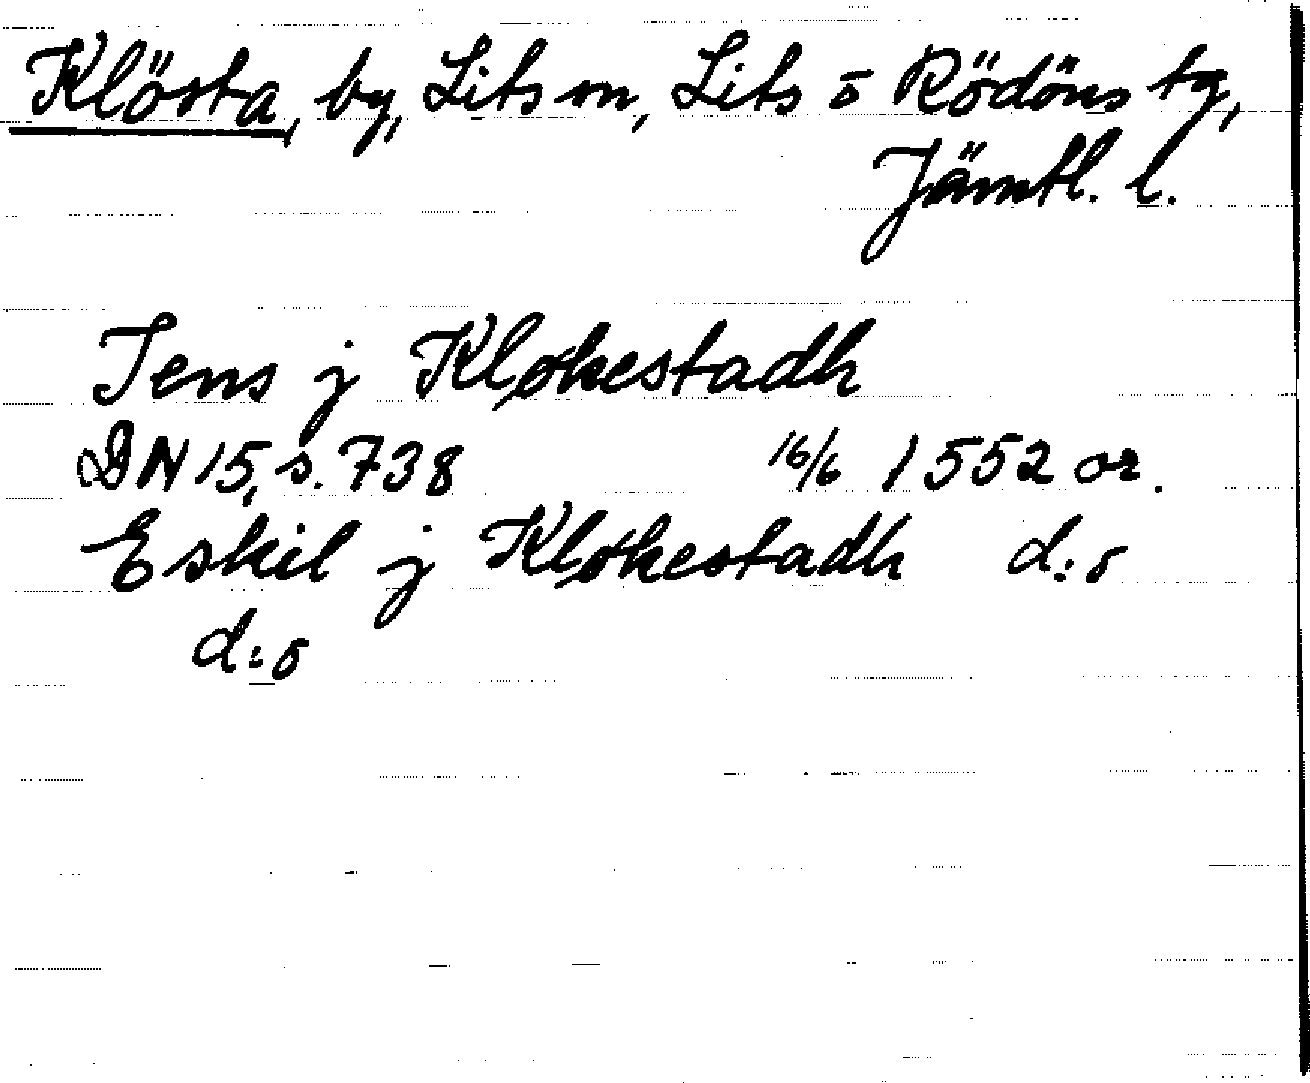 Klösta, by, Lits sn, Lits o Rödöns tg,
Jämtl. l.
Jens j Kløkestadh
DN 15, s. 738 16/6 1552 or.
Eskil j Kløkestadh d:o
d:o